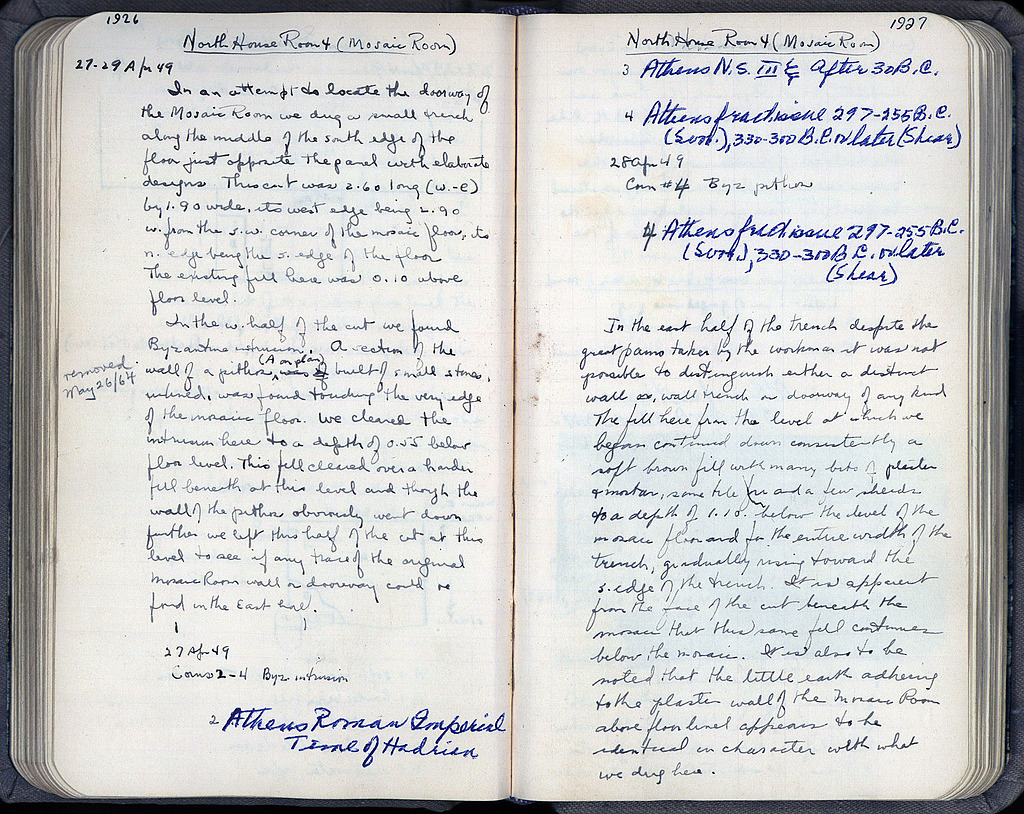 1926
North House Room 4 (Mosaic Room)
27-29 Apr 49
In an attempt to locate the doorway of
the Mosaic Room we dug a small trench
along the middle of the south edge of the
floor just opposite the panel with elaborate
designs. This cut was 2.60 long (w.-e)
by 1.90 wide, its west edge being 2.90
w. from the s.w. corner of the mosaic floor, its
n. edge being the s. edge of the floor
The existing fill here was 0.10 above
floor level.
In the w. half of the cut we found
Byzantine intrusion. A section of the
(A on plan)
wall of a pithos, was built of small stones,
removed
May 26/64
unlined, was found touching the very edge
of the mosaic floor. We cleared the
intrusion here to a depth of 0.55 below
floor level. This fill cleared over a harder
fill beneath at this level and though the
wall of the pithos obviously went down
further we left this half of the cut at this
level to see if any trace of the original
Mosaic Room wall or doorway could be
found in the East end.
27 Apr 49
Coins 2-4 Byz intrusion
2 Athens Roman Imperial
Time of Hadrian
1927
North House Room 4 (Mosaic Room)
3 Athens N.S. III After 30 B.C.
4 Athens fract. issue 297-255 B.C.
(Svor.), 330-300 B.C. or later (Shear)
28 Apr 49
Coin #4 Byz pithos
4 Athens fract. issue 297-255 B.C.
(Svor.), 330-300 B.C. or later
(Shear)
In the east half of the trench despite the
great pains taken by the workman it was not
possible to distinguish either a distinct
wall, wall trench or doorway of any kind
The fill here from the level at which we
began continued down consistently a
soft brown fill with many bits of plaster
& mortar, some tile and a few sherds
to a depth of 1.10. below the level of the
mosaic floor and for the entire width of the
trench, gradually rising toward the
s. edge of the trench. It is apparent
from the face of the cut beneath the
mosaic that this same fill continues
below the mosaic. It is also to be
noted that the little earth adhering
to the plaster wall of the Mosaic Room
above floor level appears to be
identical in character with what
we dug here.